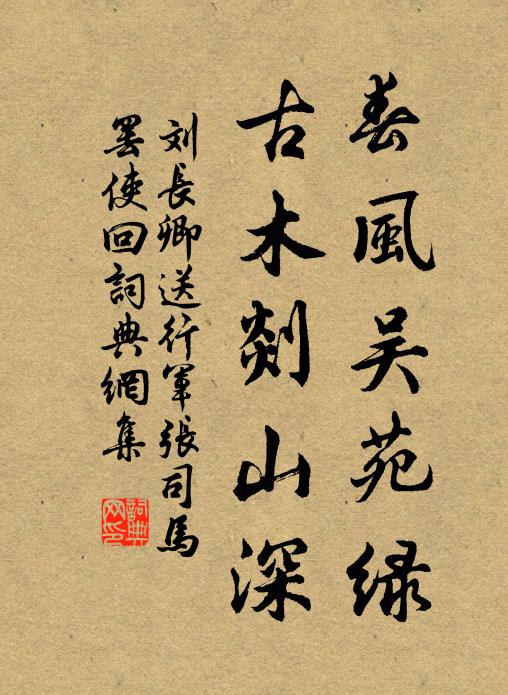 春風吴苑绿
古木剡山深
刘長卿送行軍張司馬
罢使回詞典網集
詞典
网印